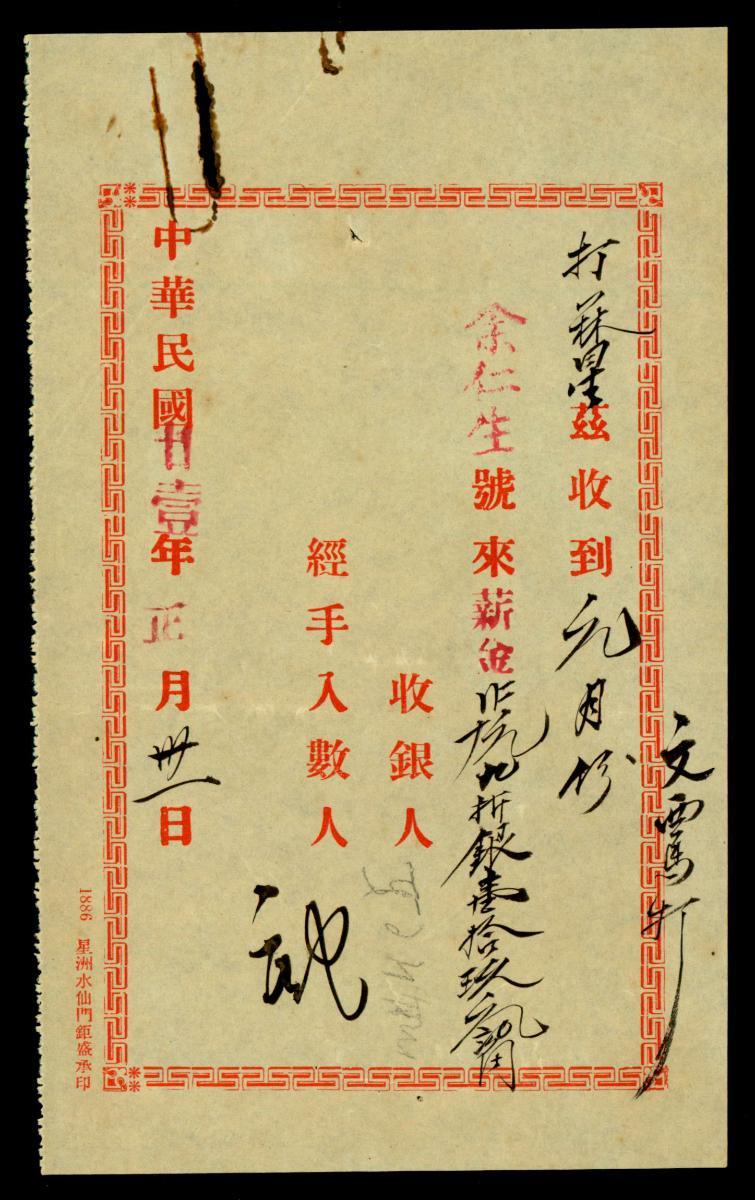 文
打
茲收到元月份
余仁生號來薪金九折銀壹拾玖元
收銀人
經手入數人
中華民國廿壹年正月卅一日
1886 星洲水仙門鉅盛承印